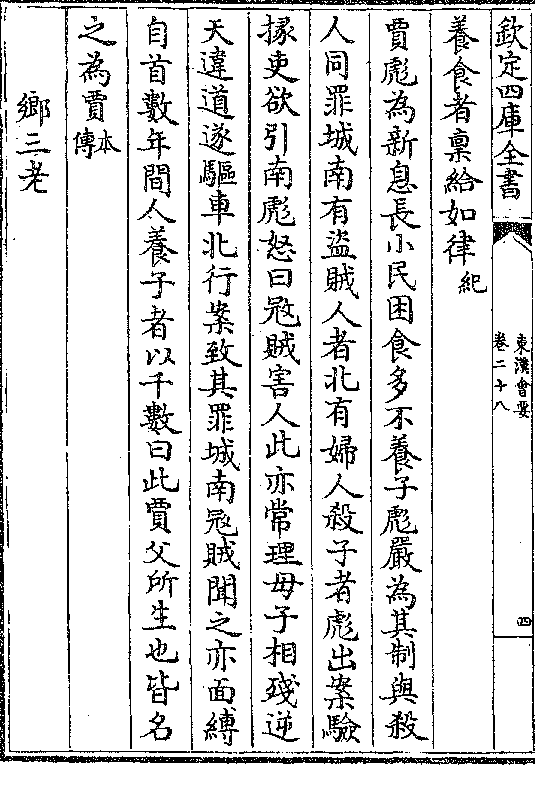 欽定四庫全書
東漢會要
卷二十八
四
養食者稟給如律紀
賈彪為新息長小民困食多不養子彪嚴為其制與殺
人同罪城南有盜賊人者北有婦人殺子者彪出案驗
掾吏欲引南彪怒曰冦賊害人此亦常理母子相殘逆
天違道遂驅車北行案致其罪城南冦賊聞之亦面縛
自首數年間人養子者以千數曰此賈父所生也皆名
之為賈本傳
鄉三老